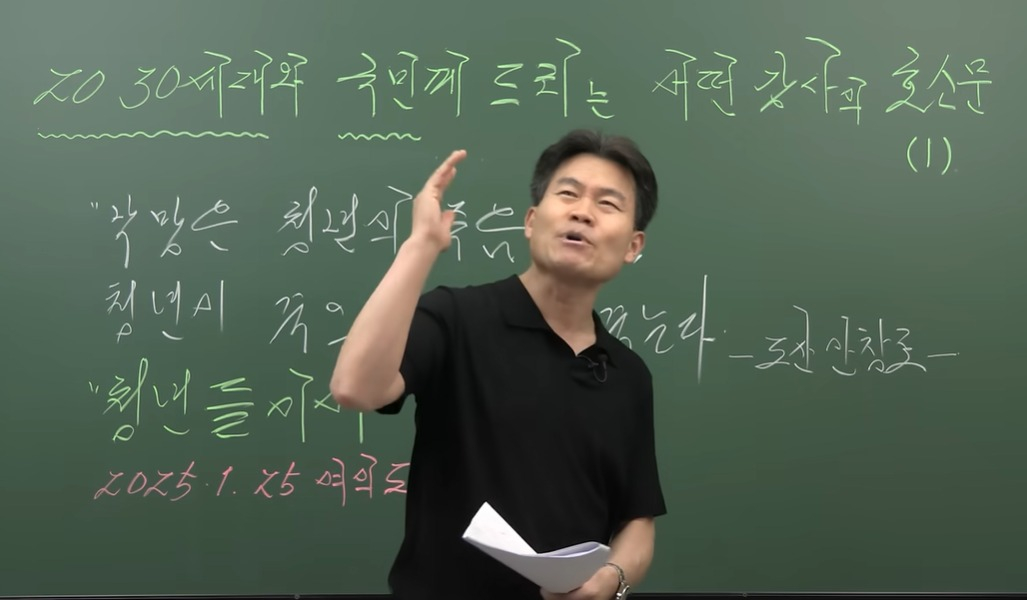 20 30세대와 국민께 드리는 어떤 강사의 호소문
(1)
"낙망은 청년의 죽음
청년이 죽으 죽는다. - 도산 안창호 -
"청년들이시여
2025. 1. 25 여의도